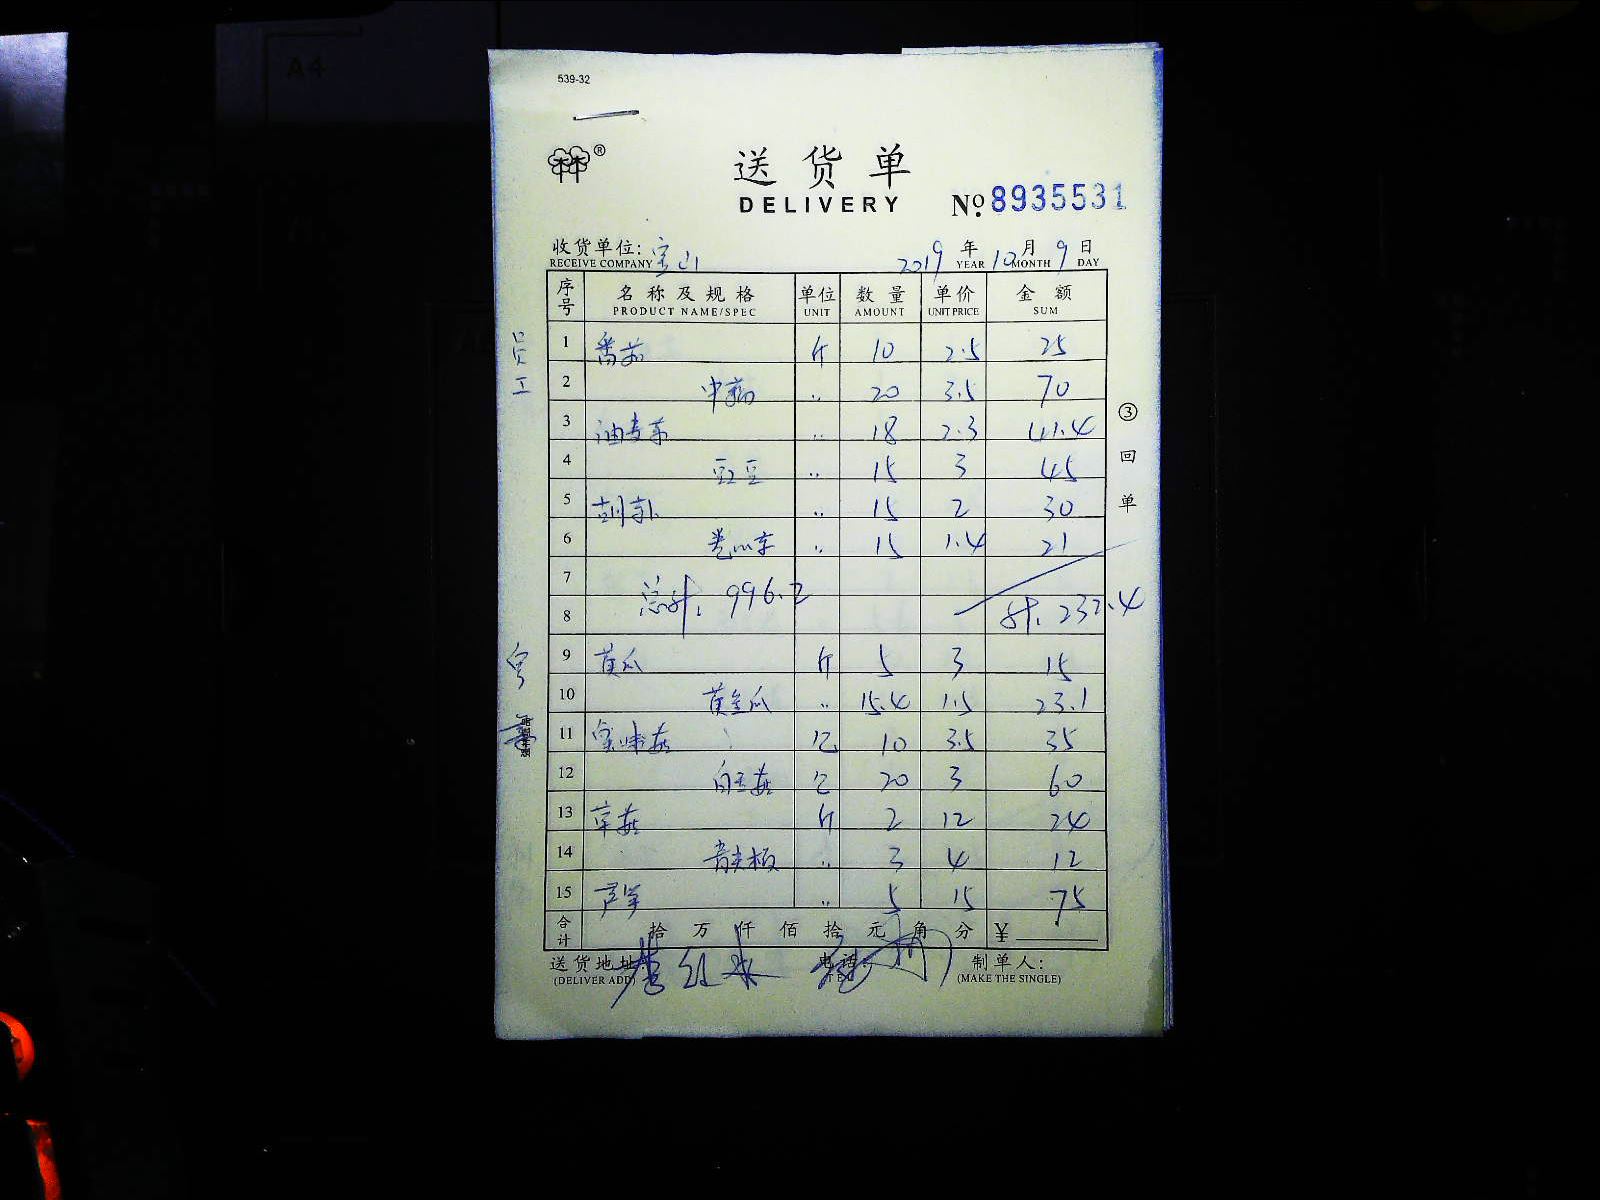 539-32
送货单
DELIVERY
№ 8935531
收货单位: 宝山 2019 年 10 月 9 日
RECEIVE COMPANY YEAR MONTH DAY
序号 名称及规格 单位 数量 单价 金额
PRODUCT NAME/SPEC UNIT AMOUNT UNIT PRICE SUM
员工
1 番茄 斤 10 2.5 25
2 〃 20 3.5 70
3 油麦菜 〃 18 2.3 41.4
4 豇豆 〃 15 3 45
5 胡萝卜 〃 15 2 30
6 〃 15 1.4 21
7 总计: 996.2
8 计: 232.4
9 黄瓜 斤 5 3 15
10 黄金瓜 〃 15.4 1.5 23.1
11 蟹味菇 包 10 3.5 35
12 白玉菇 包 20 3 60
13 草菇 斤 2 12 24
14 青尖椒 〃 3 4 12
15 芦笋 〃 5 15 75
合计 拾 万 仟 佰 拾 元 角 分 ¥
送货地址: 电话: 制单人:
(DELIVER ADD) TEL (MAKE THE SINGLE)
③ 回单